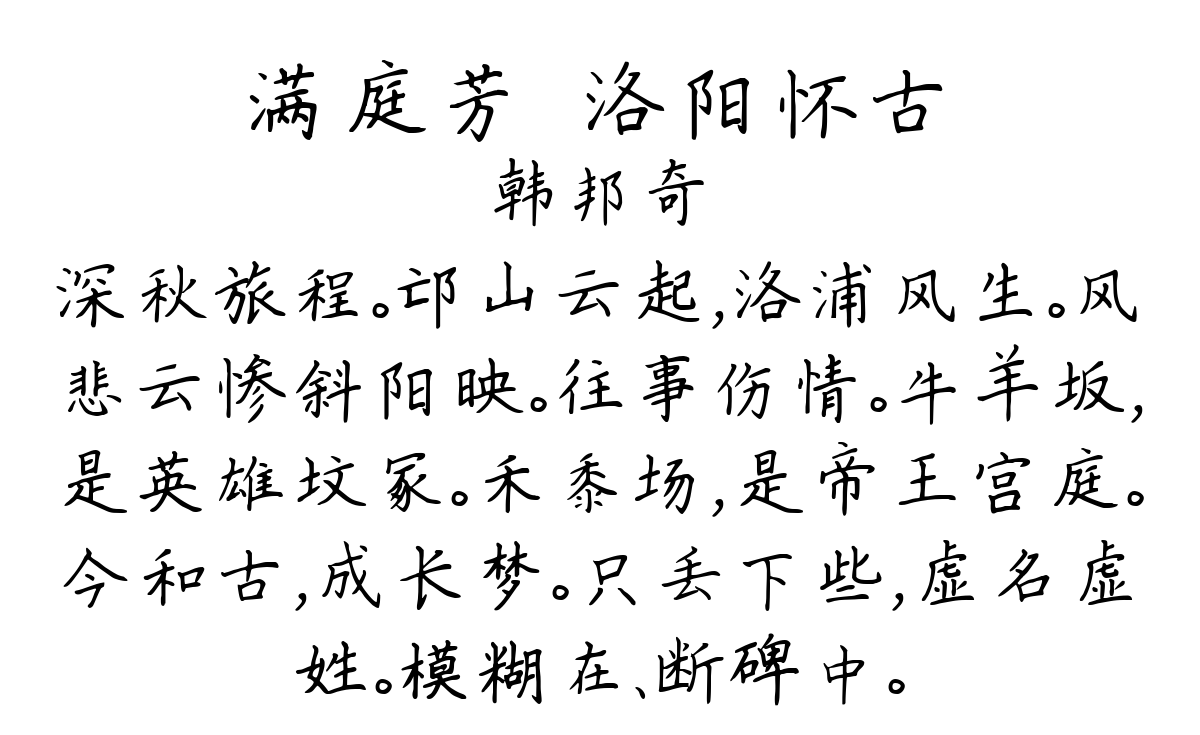 满庭芳 洛阳怀古
韩邦奇
深秋旅程。邙山云起,洛浦风生。风
悲云惨斜阳映。往事伤情。牛羊坂,
是英雄坟冢。禾黍场,是帝王宫庭。
今和古,成长梦。只丢下些,虚名虚
姓。模糊在、断碑中。